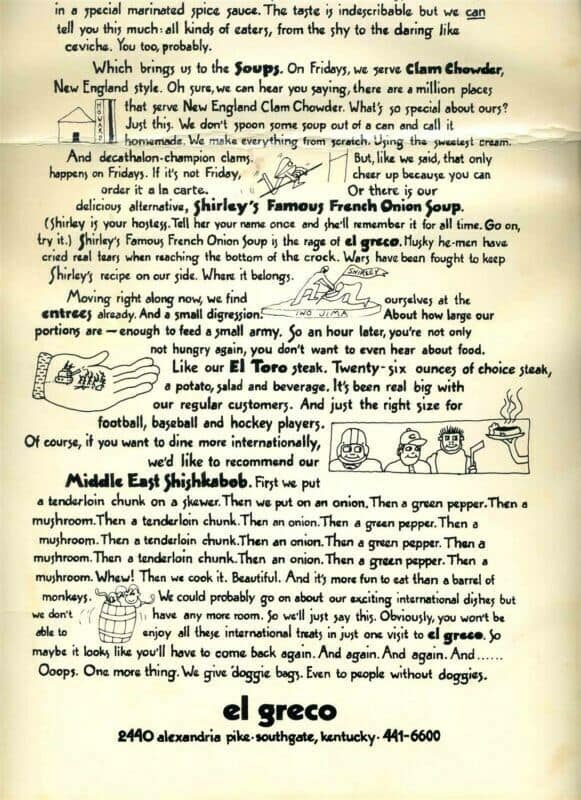 in a special marinated spice sauce. The taste is indescribable but we can
tell you this much: all kinds of eaters, from the shy to the daring like
ceviche. You too, probably.
Which brings us to the Soups. On Fridays, we serve Clam Chowder,
New England style. Oh sure, we can hear you saying, there are a million places
that serve New England Clam Chowder. What's so special about ours?
HOWARD
Just this. We don't spoon some soup out of a can and call it
homemade. We make everything from scratch. Using the sweetest cream.
And decathalon-champion clams. But, like we said, that only
happens on Fridays. If it's not Friday, cheer up because you can
order it a la carte. Or there is our
delicious alternative, Shirley's Famous French Onion Soup.
(Shirley is your hostess. Tell her your name once and she'll remember it for all time. Go on,
try it.) Shirley's Famous French Onion Soup is the rage of el greco. Husky he-men have
cried real tears when reaching the bottom of the crock. Wars have been fought to keep
Shirley's recipe on our side. Where it belongs.
SHIRLEY
Moving right along now, we find ourselves at the
entrees already. And a small digression. About how large our
IWO JIMA
portions are — enough to feed a small army. So an hour later, you're not only
not hungry again, you don't want to even hear about food.
Like our El Toro steak. Twenty-six ounces of choice steak,
a potato, salad and beverage. It's been real big with
our regular customers. And just the right size for
football, baseball and hockey players.
Of course, if you want to dine more internationally,
we'd like to recommend our
Middle East Shishkabob. First we put
a tenderloin chunk on a skewer. Then we put on an onion. Then a green pepper. Then a
mushroom. Then a tenderloin chunk. Then an onion. Then a green pepper. Then a
mushroom. Then a tenderloin chunk. Then an onion. Then a green pepper. Then a
mushroom. Then a tenderloin chunk. Then an onion. Then a green pepper. Then a
mushroom. Whew! Then we cook it. Beautiful. And it's more fun to eat than a barrel of
monkeys. We could probably go on about our exciting international dishes but
we don't have any more room. So we'll just say this. Obviously, you won't be
able to enjoy all these international treats in just one visit to el greco. So
maybe it looks like you'll have to come back again. And again. And again. And......
Ooops. One more thing. We give doggie bags. Even to people without doggies.
el greco
2440 alexandria pike · southgate, kentucky · 441-6600